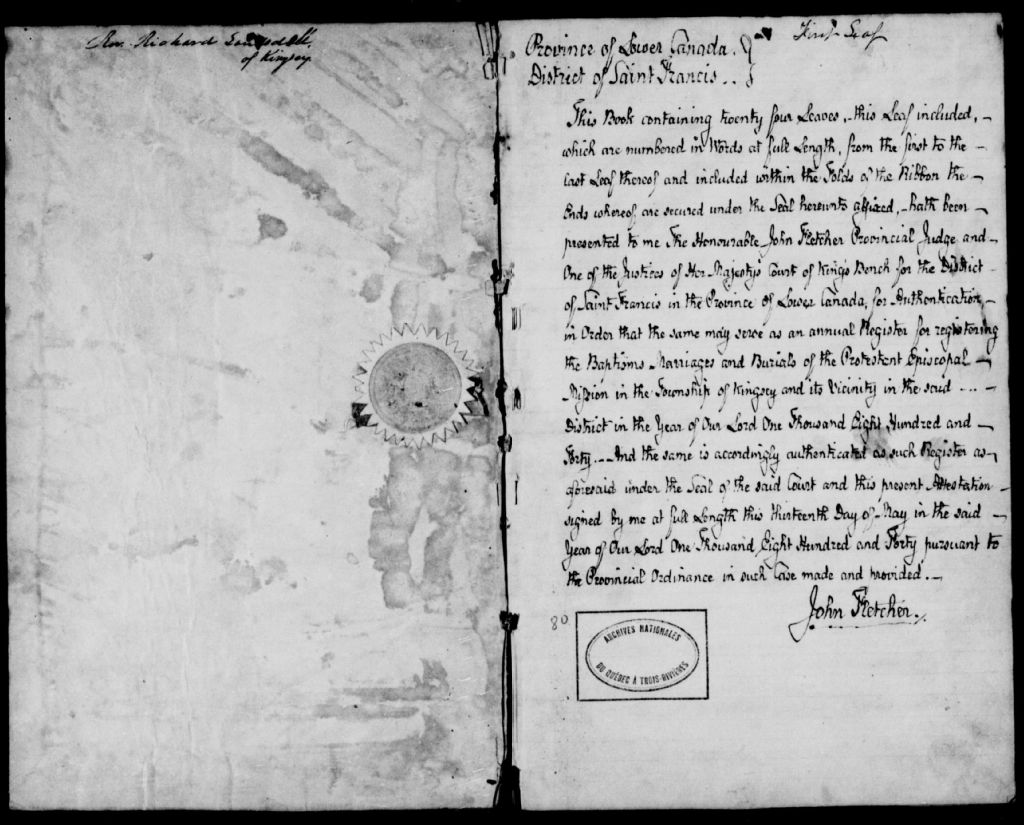 Rev. Richard
of Kingsey.
First Leaf
Province of Lower Canada.
District of Saint Francis..
This Book containing twenty four Leaves, - this Leaf included, -
which are numbered in Words at full Length, from the first to the -
last Leaf thereof and included within the Folds of the Ribbon the -
Ends whereof are secured under the Seal hereunto affixed, - hath been -
presented to me The Honourable John Fletcher Provincial Judge and -
One of the Justices of Her Majesty's Court of King's Bench for the District
of Saint Francis in the Province of Lower Canada, for Authentication, -
in Order that the same may serve as an annual Register for registering
the Baptisms Marriages and Burials of the Protestent Episcopal -
Mission in the Township of Kingsey and its Vicinity in the said ... -
District in the Year of Our Lord One Thousand Eight Hundred and -
Forty. - And the same is accordingly authenticated as such Register as -
aforesaid under the Seal of the said Court and this present Attestation -
signed by me at full Length this thirteenth Day of May in the said -
Year of Our Lord One Thousand Eight Hundred and Forty pursuant to
the Provincial Ordinance in such Case made and provided. -
John Fletcher.
80
ARCHIVES NATIONALES
DU QUÉBEC À TROIS-RIVIÈRES